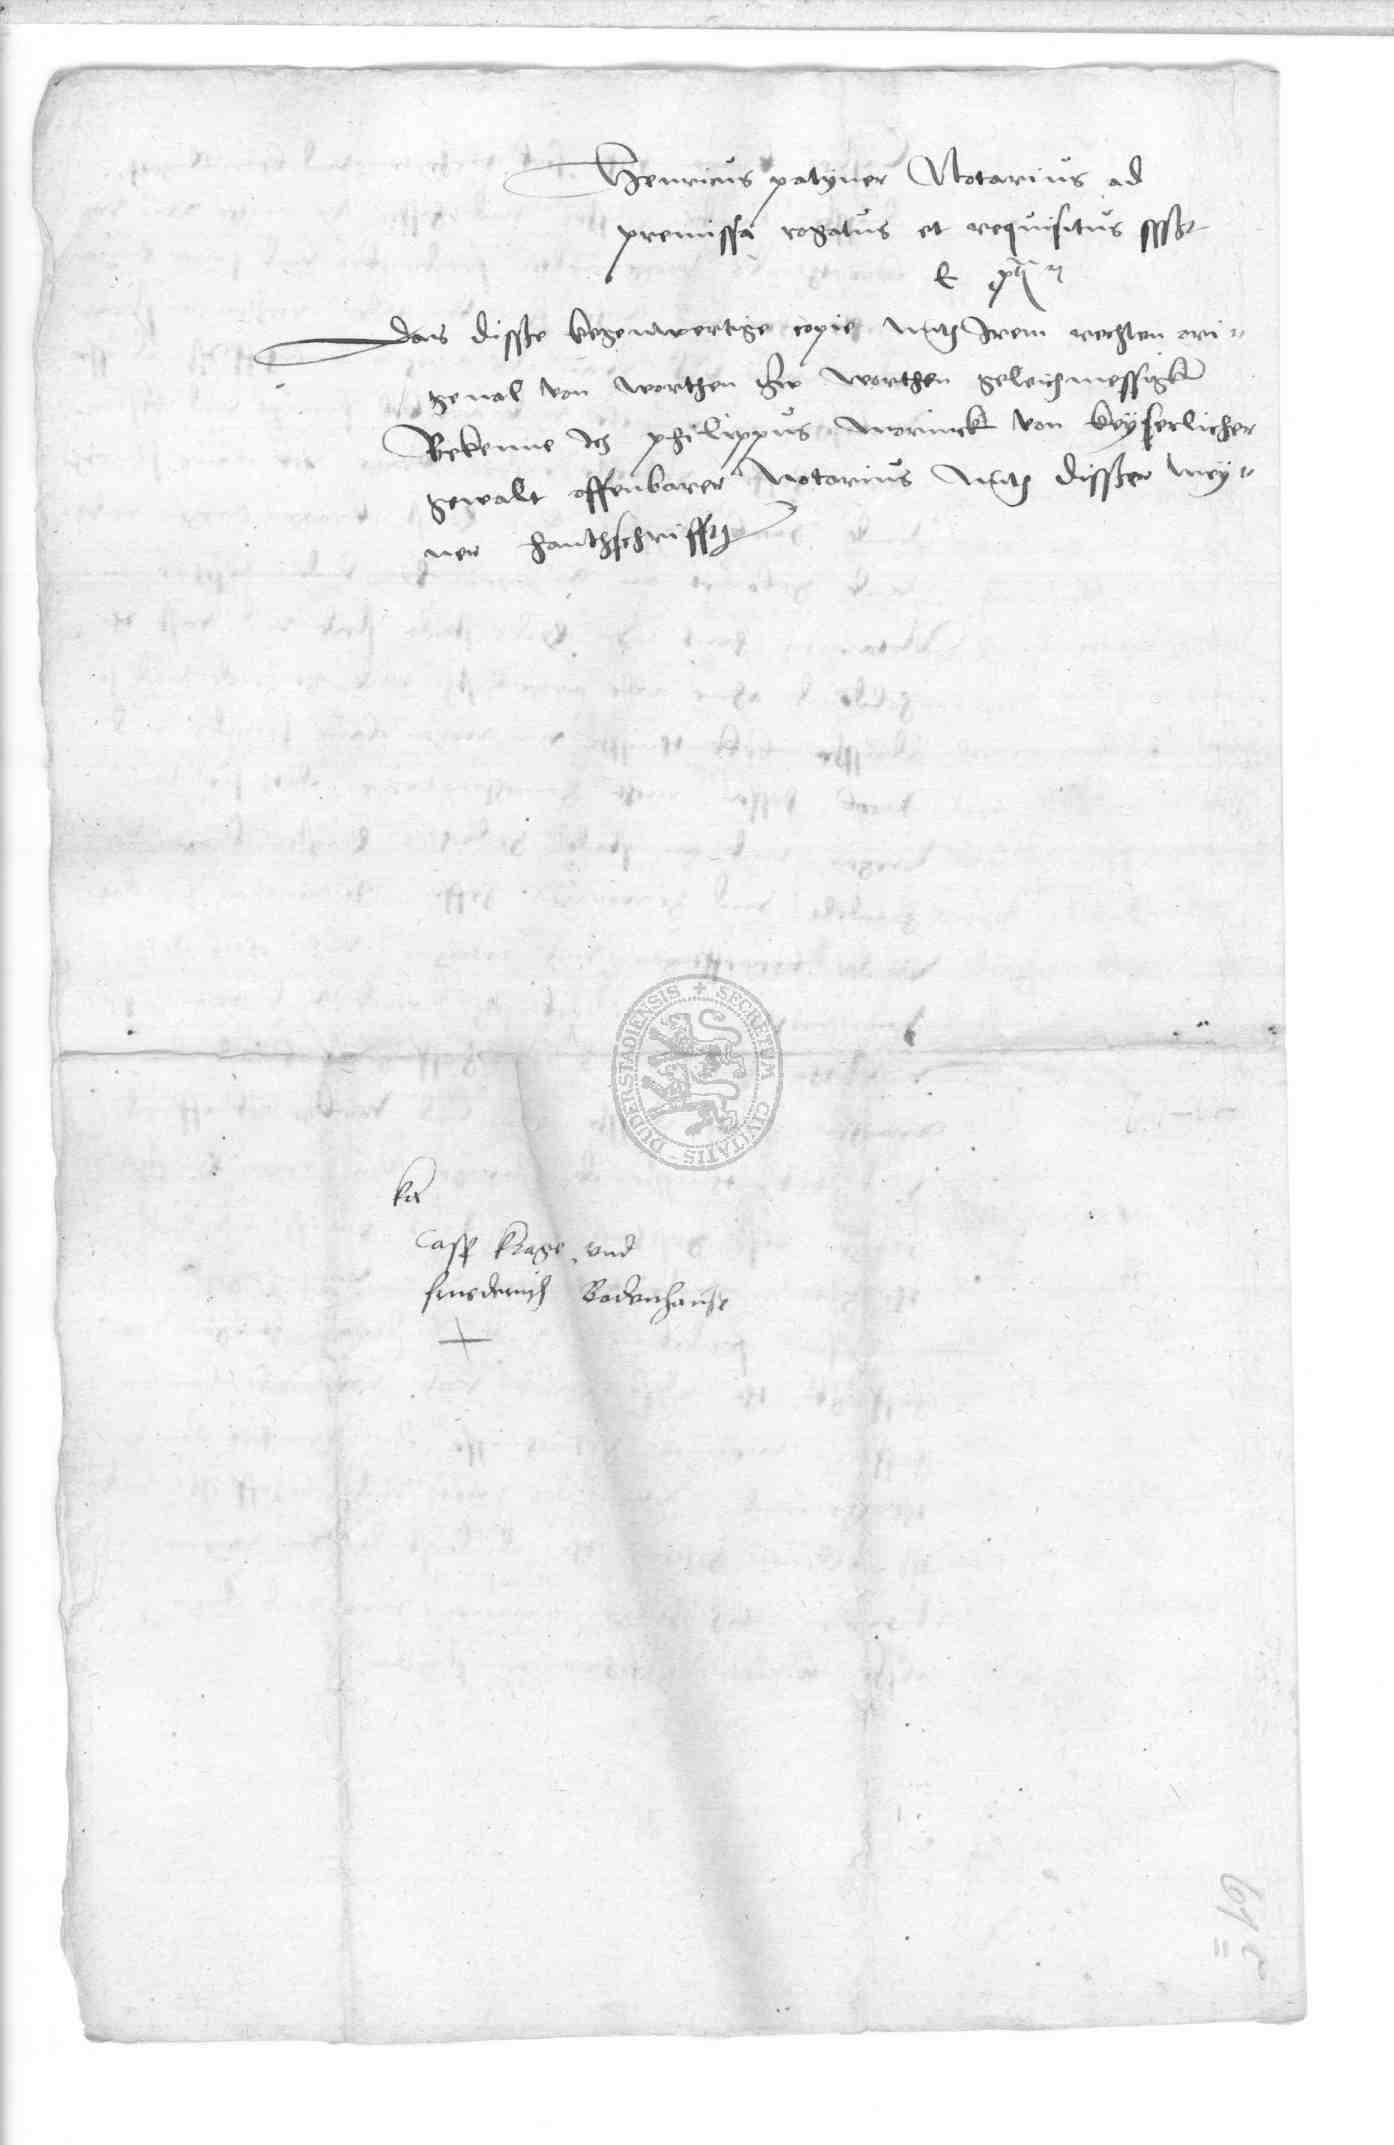 Henricus patyner Notarius ad
premissa rogatus et requisitus sssst
Das dissze kegenwertige copie mith Irem rechten ori-
genal von worthen zw worthen geleichmessigk
Bekenne Ich philippus morinck von keyserlicher
gewalt offenbarer Notarius mith disszer mey-
ner hanthschrifft
Casp krage und
friederich Bodenhause
+ SECRETUM CIVITATIS DUDERSTADIENSIS